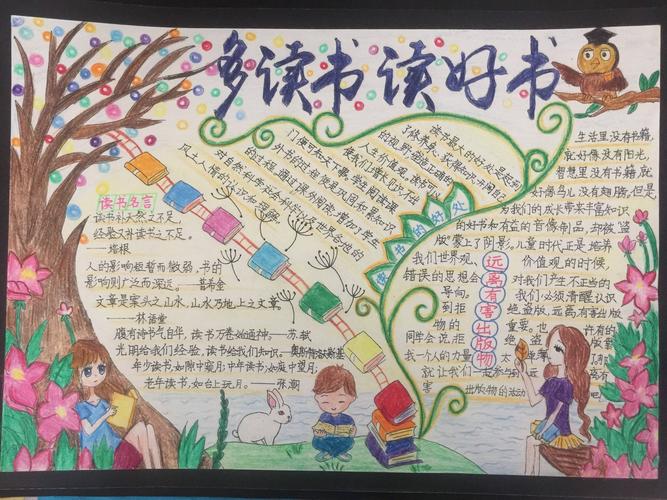 多读书读好书
读书名言
读书补天然之不足,
经验又补读书之不足。
——培根
人的影响短暂而微弱,书的
影响则广泛而深远。——普希金
文章是案头之山水,山水乃地上之文章。
——林语堂
腹有诗书气自华,读书万卷始通神。——苏轼
光明给我们经验,读书给我们知识。——奥斯特洛夫斯基
年少读书,如隙中窥月;中年读书,如庭中望月;
老年读书,如台上玩月。——张潮
读书的好处
读书最大的好处是起到
了修养
人生价值观,读书可以
使我们增长见识,不出
门便可知天下事,学生阅读课
外书的过程便是巩固、积累知识
的过程,通过课外阅读,增加了学生
对自然科学、社会科学以及世界各地的
风土人情的认识和理解
远离有害出版物
生活里没有书籍,
就好像没有阳光,
智慧里没有书籍,就
好像鸟儿没有翅膀。但是
为我们的成长带来丰富知识
的好书和有益的音像制品,却被盗
版蒙上了阴影。儿童时代正是培养
我们世界观、价值观的时候,
错误的思想会对我们产生不正当的
导向。我们必须清醒认识
到拒绝盗版,远离有害出版
物的重要。也许有的
同学会说,拒绝
我一个人的力量太
就让我们一起参与到远
害出版物的活动
吧!